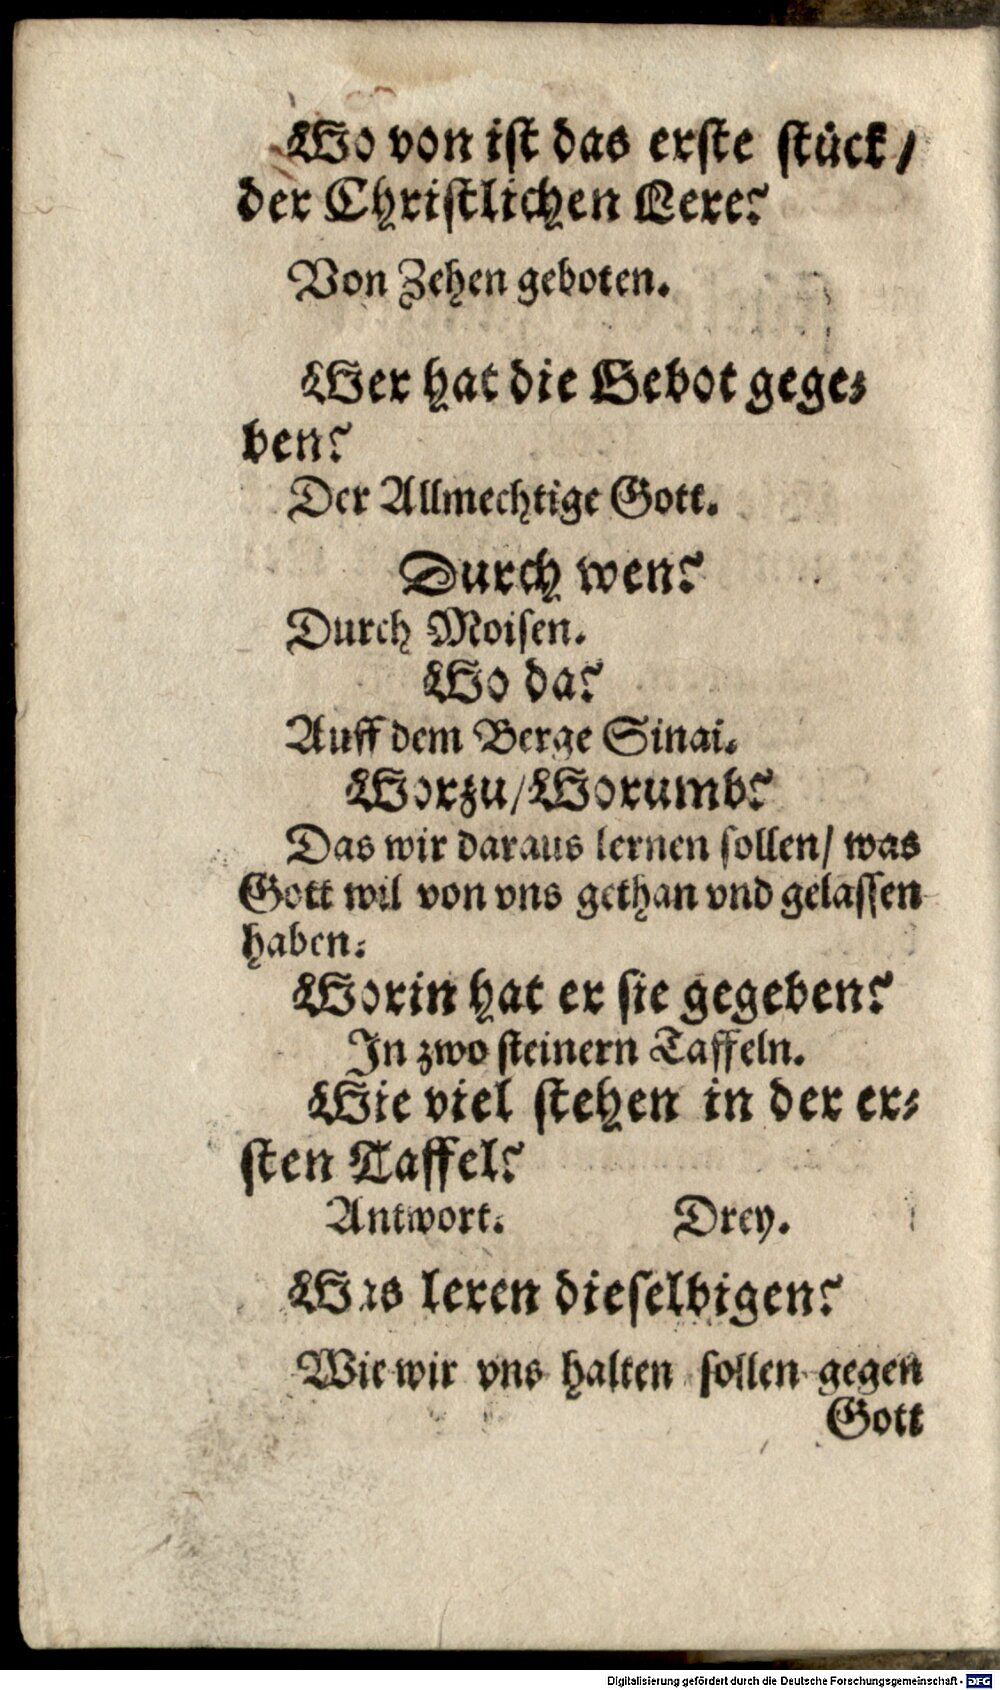 Wo von ist das erste stück /
der Christlichen Lere?
Von Zehen geboten.
Wer hat die Gebot gege⸗
ben?
Der Allmechtige Gott.
Durch wen?
Durch Moisen.
Wo da?
Auff dem Berge Sinai.
Worzu / Worumb?
Das wir daraus lernen sollen / was
Gott wil von vns gethan vnd gelassen
haben.
Worin hat er sie gegeben?
In zwo steinern Taffeln.
Wie viel stehen in der er⸗
sten Taffel?
Antwort. Drey.
Was leren dieselbigen?
Wie wir vns halten sollen gegen
Gott
Digitalisierung gefördert durch die Deutsche Forschungsgemeinschaft - DFG